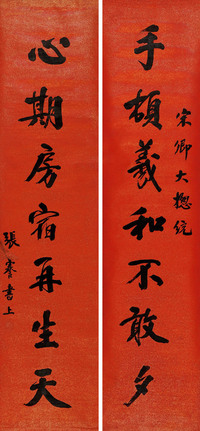 宋卿大摠統
手頓羲和不敢夕
心期房宿再生天
張謇書上